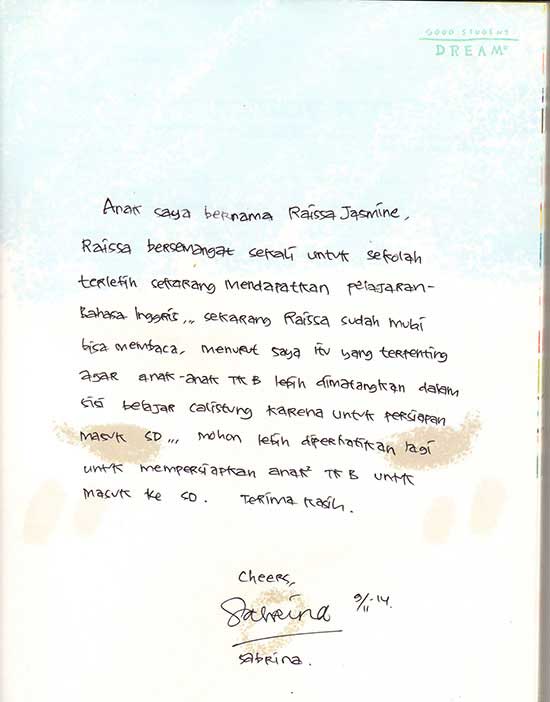 GOOD STUDENT
DREAM
Anak saya bernama Raissa Jasmine,
Raissa bersemangat sekali untuk sekolah
terlebih sekarang mendapatkan pelajaran-
Bahasa Inggris,,, sekarang Raissa sudah mulai
bisa membaca, menurut saya itu yang terpenting
agar anak-anak TK B lebih dimatangkan dalam
sisi belajar calistung karena untuk persiapan
masuk SD,,, mohon lebih diperhatikan lagi
untuk mempersiapkan anak² TK B untuk
masuk ke SD. Terima kasih.
Cheers,
Sabrina 9/11-14.
Sabrina.